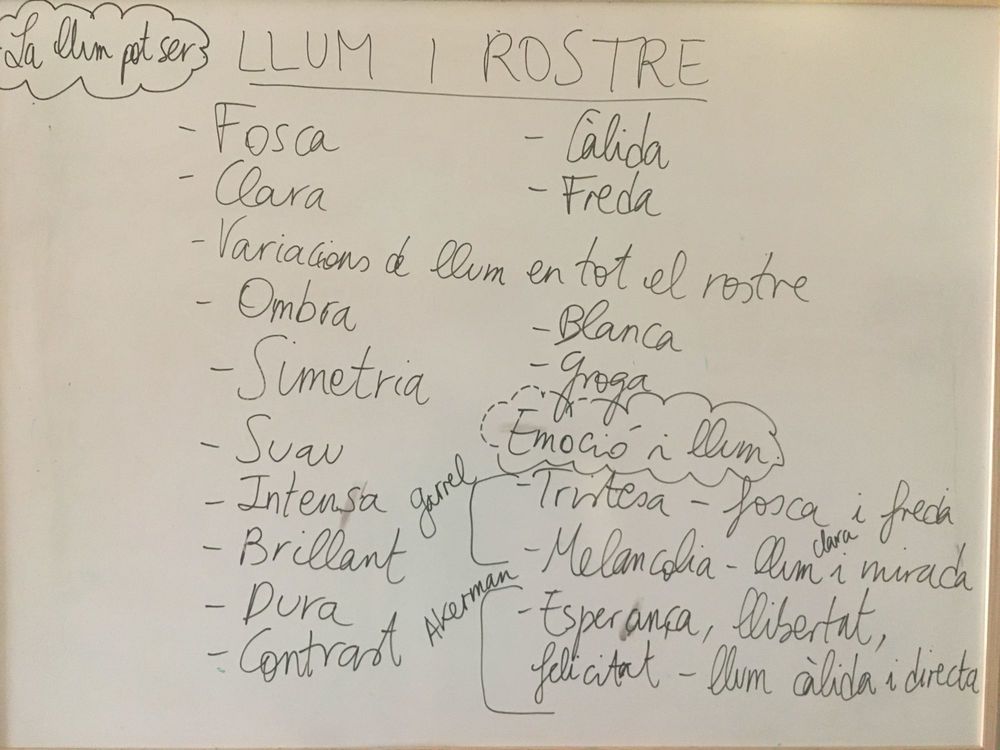 La llum pot ser
LLUM I ROSTRE
- Fosca
- Clara
- Càlida
- Freda
- Variacions de llum en tot el rostre
- Ombra
- Simetria
- Suau
- Intensa
- Brillant
- Dura
- Contrast
- Blanca
- Groga
Emoció i llum
garrel
- Tristesa - fosca i freda
- Melancolia - llum clara i mirada
Akerman
- Esperança, llibertat,
felicitat - llum càlida i directa